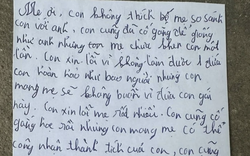 Mẹ ơi, con không thích bố mẹ so sánh
con với anh, con cũng đã cố gắng để giống
như anh nhưng mẹ chưa khen con một
lần. Con xin lỗi vì không làm được 1 đứa
con hoàn hảo như bao người nhưng con
mong mẹ sẽ không buồn vì đứa con gái
này. Con xin lỗi mẹ rất nhiều. Con cũng cố
gắng học rất nhưng con mong mẹ có thể
công nhận thành tích của con, con cũng